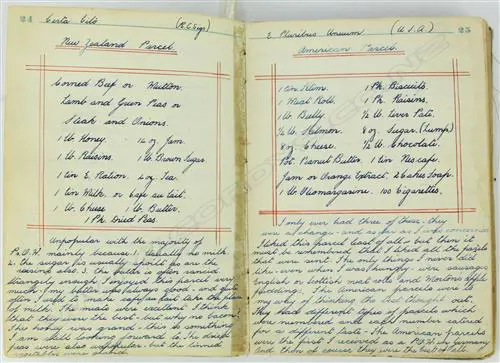 24 Certa Cito (R.C. Sigs)
New Zealand Parcel.
Corned Beef or Mutton.
Lamb and Green Peas or
Steak and Onions.
1 lb Honey. 12 oz. Jam.
1 lb Raisins. 1 lb Brown Sugar.
1 tin E. Ration. 4 oz Tea.
1 tin Milk. or Cafe au lait.
1 lb. Cheese 1 lb. Butter.
1 Pk. Dried Peas.
Unpopular with the majority of
P.O.W. mainly because: 1. Usually no milk.
2. The sugar is usually spoilt so are the
raisins also 3. the butter is often rancid
Strangely enough I enjoyed this parcel very
much / my butter was always good - and quite
often I used to make
of milk. The meats were excellent I think
that they were the best - but why no bacon?
The honey was grand - this is something
I am still looking forward to. The dried
peas were also popular - but the tinned
vegetables were
E Pluribus Unum (U.S.A) 25
American Parcel.
1 tin Klim. 1 Pk. Biscuits.
1 Meat Roll. 1 Pk. Raisins.
1 lb. Bully ½ lb. Liver Pate.
½ lb. Salmon. 8 oz. Sugar. (Lump)
8 oz. Cheese. ½ lb. Chocolate.
Pot. Peanut Butter. 1 tin Nescafe.
Jam or Orange Extract. 2 Cakes Soap.
1 lb. Oliomargarine. 100 Cigarettes.
I only ever had three of these - they
were a change - and as far as I was concerned
I liked this parcel least of all - but then it
must be remembered that I liked all the parcels
that were sent. The only things I never did
like - even when I was hungry - were sausages
English or British meat rolls and Mortons style
pudding. The American parcels were to
my way of thinking the best thought out.
They had different types of parcels which
were numbered and each number catered
for a different taste. The American parcels
were the first I received as a P.O.W. in Germany
and then of course they were the be-all